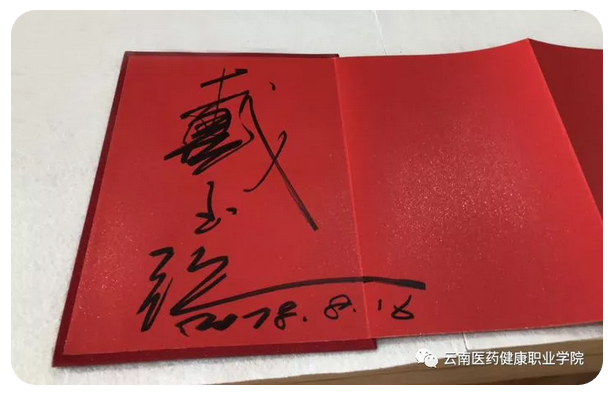 戴
玉
2018.8.18
云南医药健康职业学院